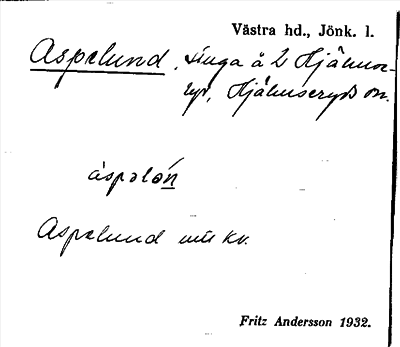 Västra hd., Jönk. l.
Aspelund, äuga å 2 Hjälmse-
ryd, Hjälmseryds sn.
àspəlón
Aspelund
Fritz Andersson 1932.